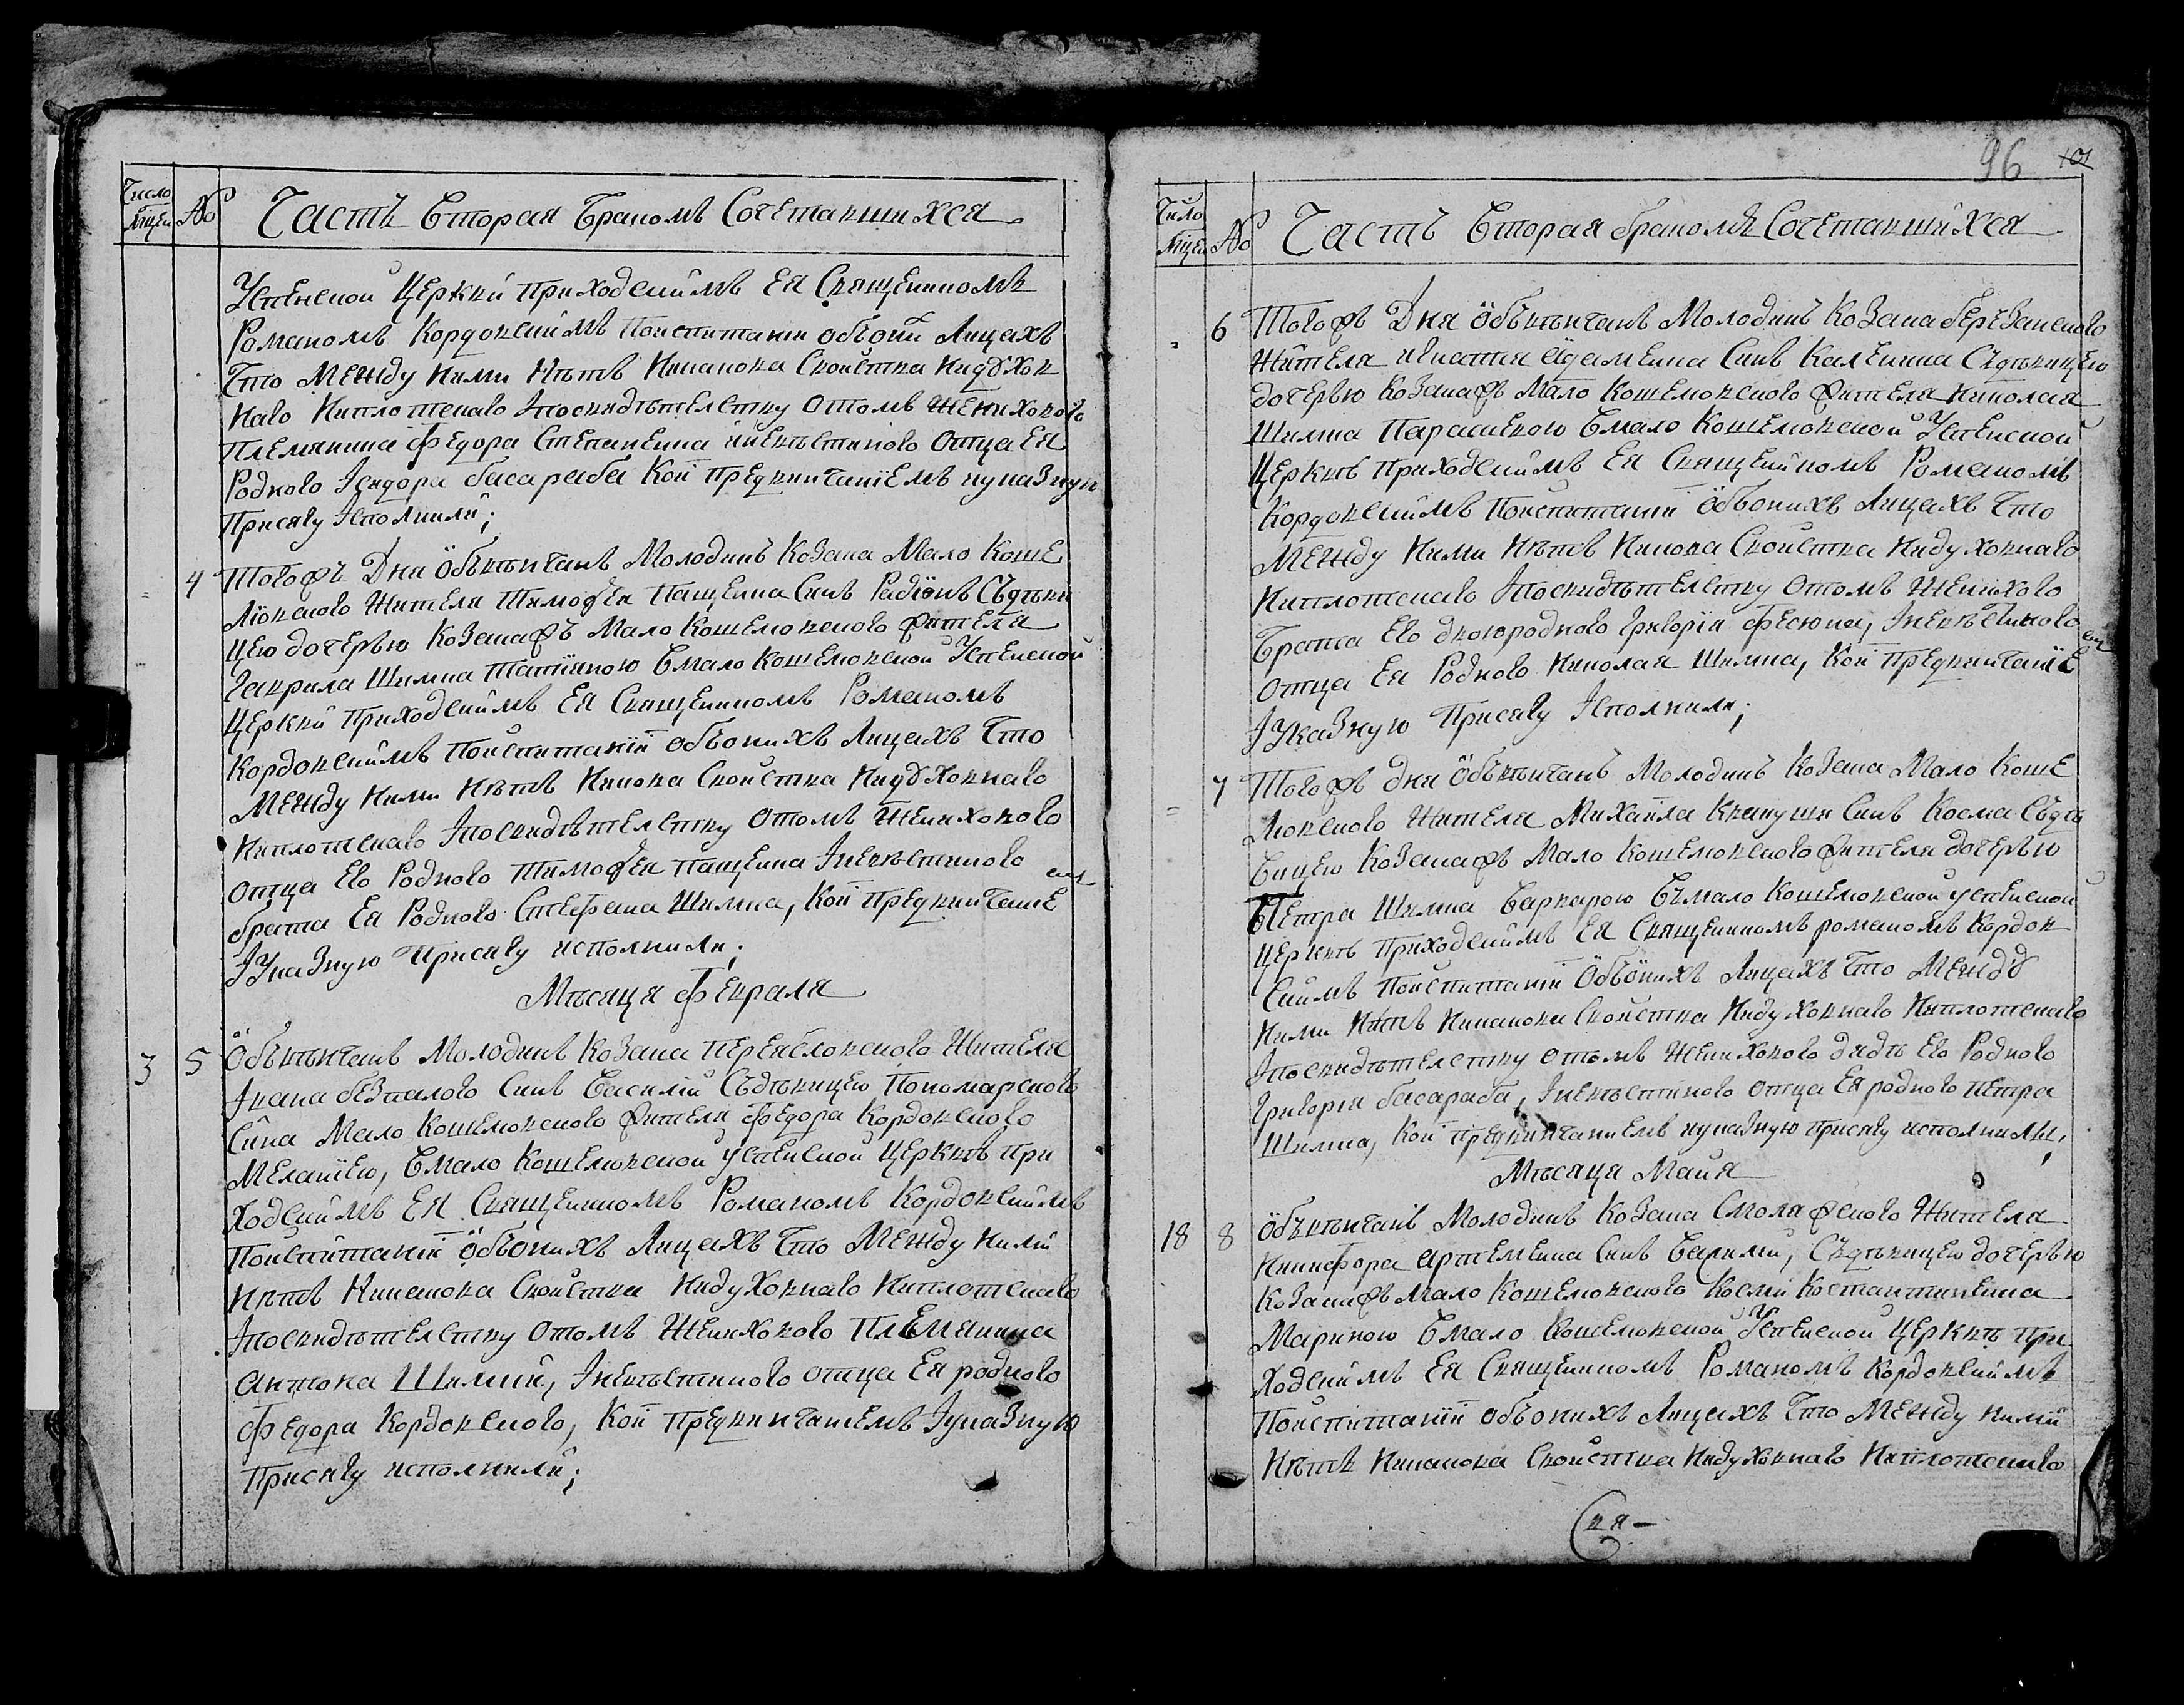 Число
Мцей
№
Часть Вторая Бракомъ Сочетавшихся
Успенской Церкви Приходскимъ Ея Священникомъ
Романомъ Кордовскимъ Поиспитании обѣоихъ Лицахъ
Что Между Ними Нѣтъ Никакова Свойства Нидуховъ
наго Ниплотскаго Ипосвидѣтелству Отомъ Женихового
Племянника Федора Степаненка иневѣстиного Отца Ея
Родного Исидора басараба Кой Предвинчаниемъ иуказную
Присягу Исполнили;
= 4 Тогожъ Дня Обѣвѣнчанъ Молодикъ Козака Мало Коше
лювского Жителя Тимофея Пащенка Синъ Радионъ Съдѣви
цею дочерью Козакажъ Мало Кошелювского жителя
Гаврила Шимка Татияною Вмало Кошелювской Успенской
Церкви Приходскимъ Ея Священникомъ Романомъ
Кордовскимъ Поиспитании обѣоихъ Лицахъ Что
Между Ними Нѣтъ Никова Свойства Нидуховнаго
Ниплотскаго Ипосвидѣтелству Отомъ Женихового
Отца Его Родного Тимофея пащенка Иневѣстиного
брата Ея Родного Стефана Шимка, Кой Предвинчание
емъ
Иуказную Присягу исполнили;
Мѣсяца Февраля
3 5 Обѣвѣнчанъ Молодикъ Козака Переясловского Жителя
Ивана безпалого Синъ Василий Съдѣвицею Пономарского
Сина Мало Кошелювского жителя Федора Кордовского
Меланиею, Вмало Кошелювской Успенской Церквѣ При
ходскимъ Ея Священникомъ Романомъ Кордовскимъ
Поиспитании обѣоихъ Лицахъ Что Между Ними
Нѣтъ Никакова Свойства Нидуховнаго Ниплотскаго
Ипосвидѣтелству Отомъ Женихового Племянника
Антона Шимки, Иневѣстиного отца Ея родного
Федора Кордовского, Кой предвинчаниемъ Иуказную
Присягу исполнили;
96 101
Число
Мцей
№
Часть Вторая бракомъ Сочетавшихся
= 6 Тогожъ Дня Обѣвѣнчанъ Молодикъ Козака березанского
Жителя Игнатия Адаменка Синъ Каленика Съдѣвицею
дочерью Козакажъ Мало Кошелювского жителя Николая
Шимка Параскевою Вмало Кошелювской Успенской
Церквѣ Приходскимъ Ея Священникомъ Романомъ
Кордовскимъ Поиспитании Обѣоихъ Лицахъ Что
Между Ними Нѣтъ Никова Свойства Нидуховнаго
Ниплотскаго Ипосвидѣтелству Отомъ Женихового
Брата Его двоюродного Григория Фесюна, Иневѣстиного
Отца Ея Родного Николая Шимка, Кой Предвинчание
емъ
Иуказную Присягу Исполнили;
= 7 Тогожъ дня Обѣвѣнчанъ Молодикъ Козака Мало Коше
лювского Жителя Михайла Квакуши Синъ Косма Съдѣ
вицею Козакажъ Мало Кошелювского жителя дочерью
Петра Шимка Варварою Вьмало Кошелювской успенской
Церквѣ Приходскимъ Ея Священникомъ романомъ Кордов
скимъ Поиспитании Обѣоихъ Лицахъ Что Между
Ними Нѣтъ Никакова Свойства Нидуховнаго Ниплотскаго
Ипосвидѣтелству Отомъ Женихового дядѣ Его Родного
Григория басараба, Иневѣстиного отца Ея родного петра
Шимка, Кой предвинчаниемъ иуказную присягу исполнили;
Мѣсяца Майя
18 8 Обѣвѣнчанъ Молодикъ Козака Смоляжского Жителя
Никифора Артеменка Синъ Вакимъ, Съдѣвицею дочерью
Козакажъ Мало Кошелювского Косми Костантиненка
Мариною Вмало Кошелювской Успенской Церквѣ При
ходскимъ Ея Священникомъ Романомъ Кордовскимъ
Поиспитании обѣоихъ Лицахъ Что Между ними
Нѣтъ Никакова Свойства Нидуховнаго Ниплотскаго